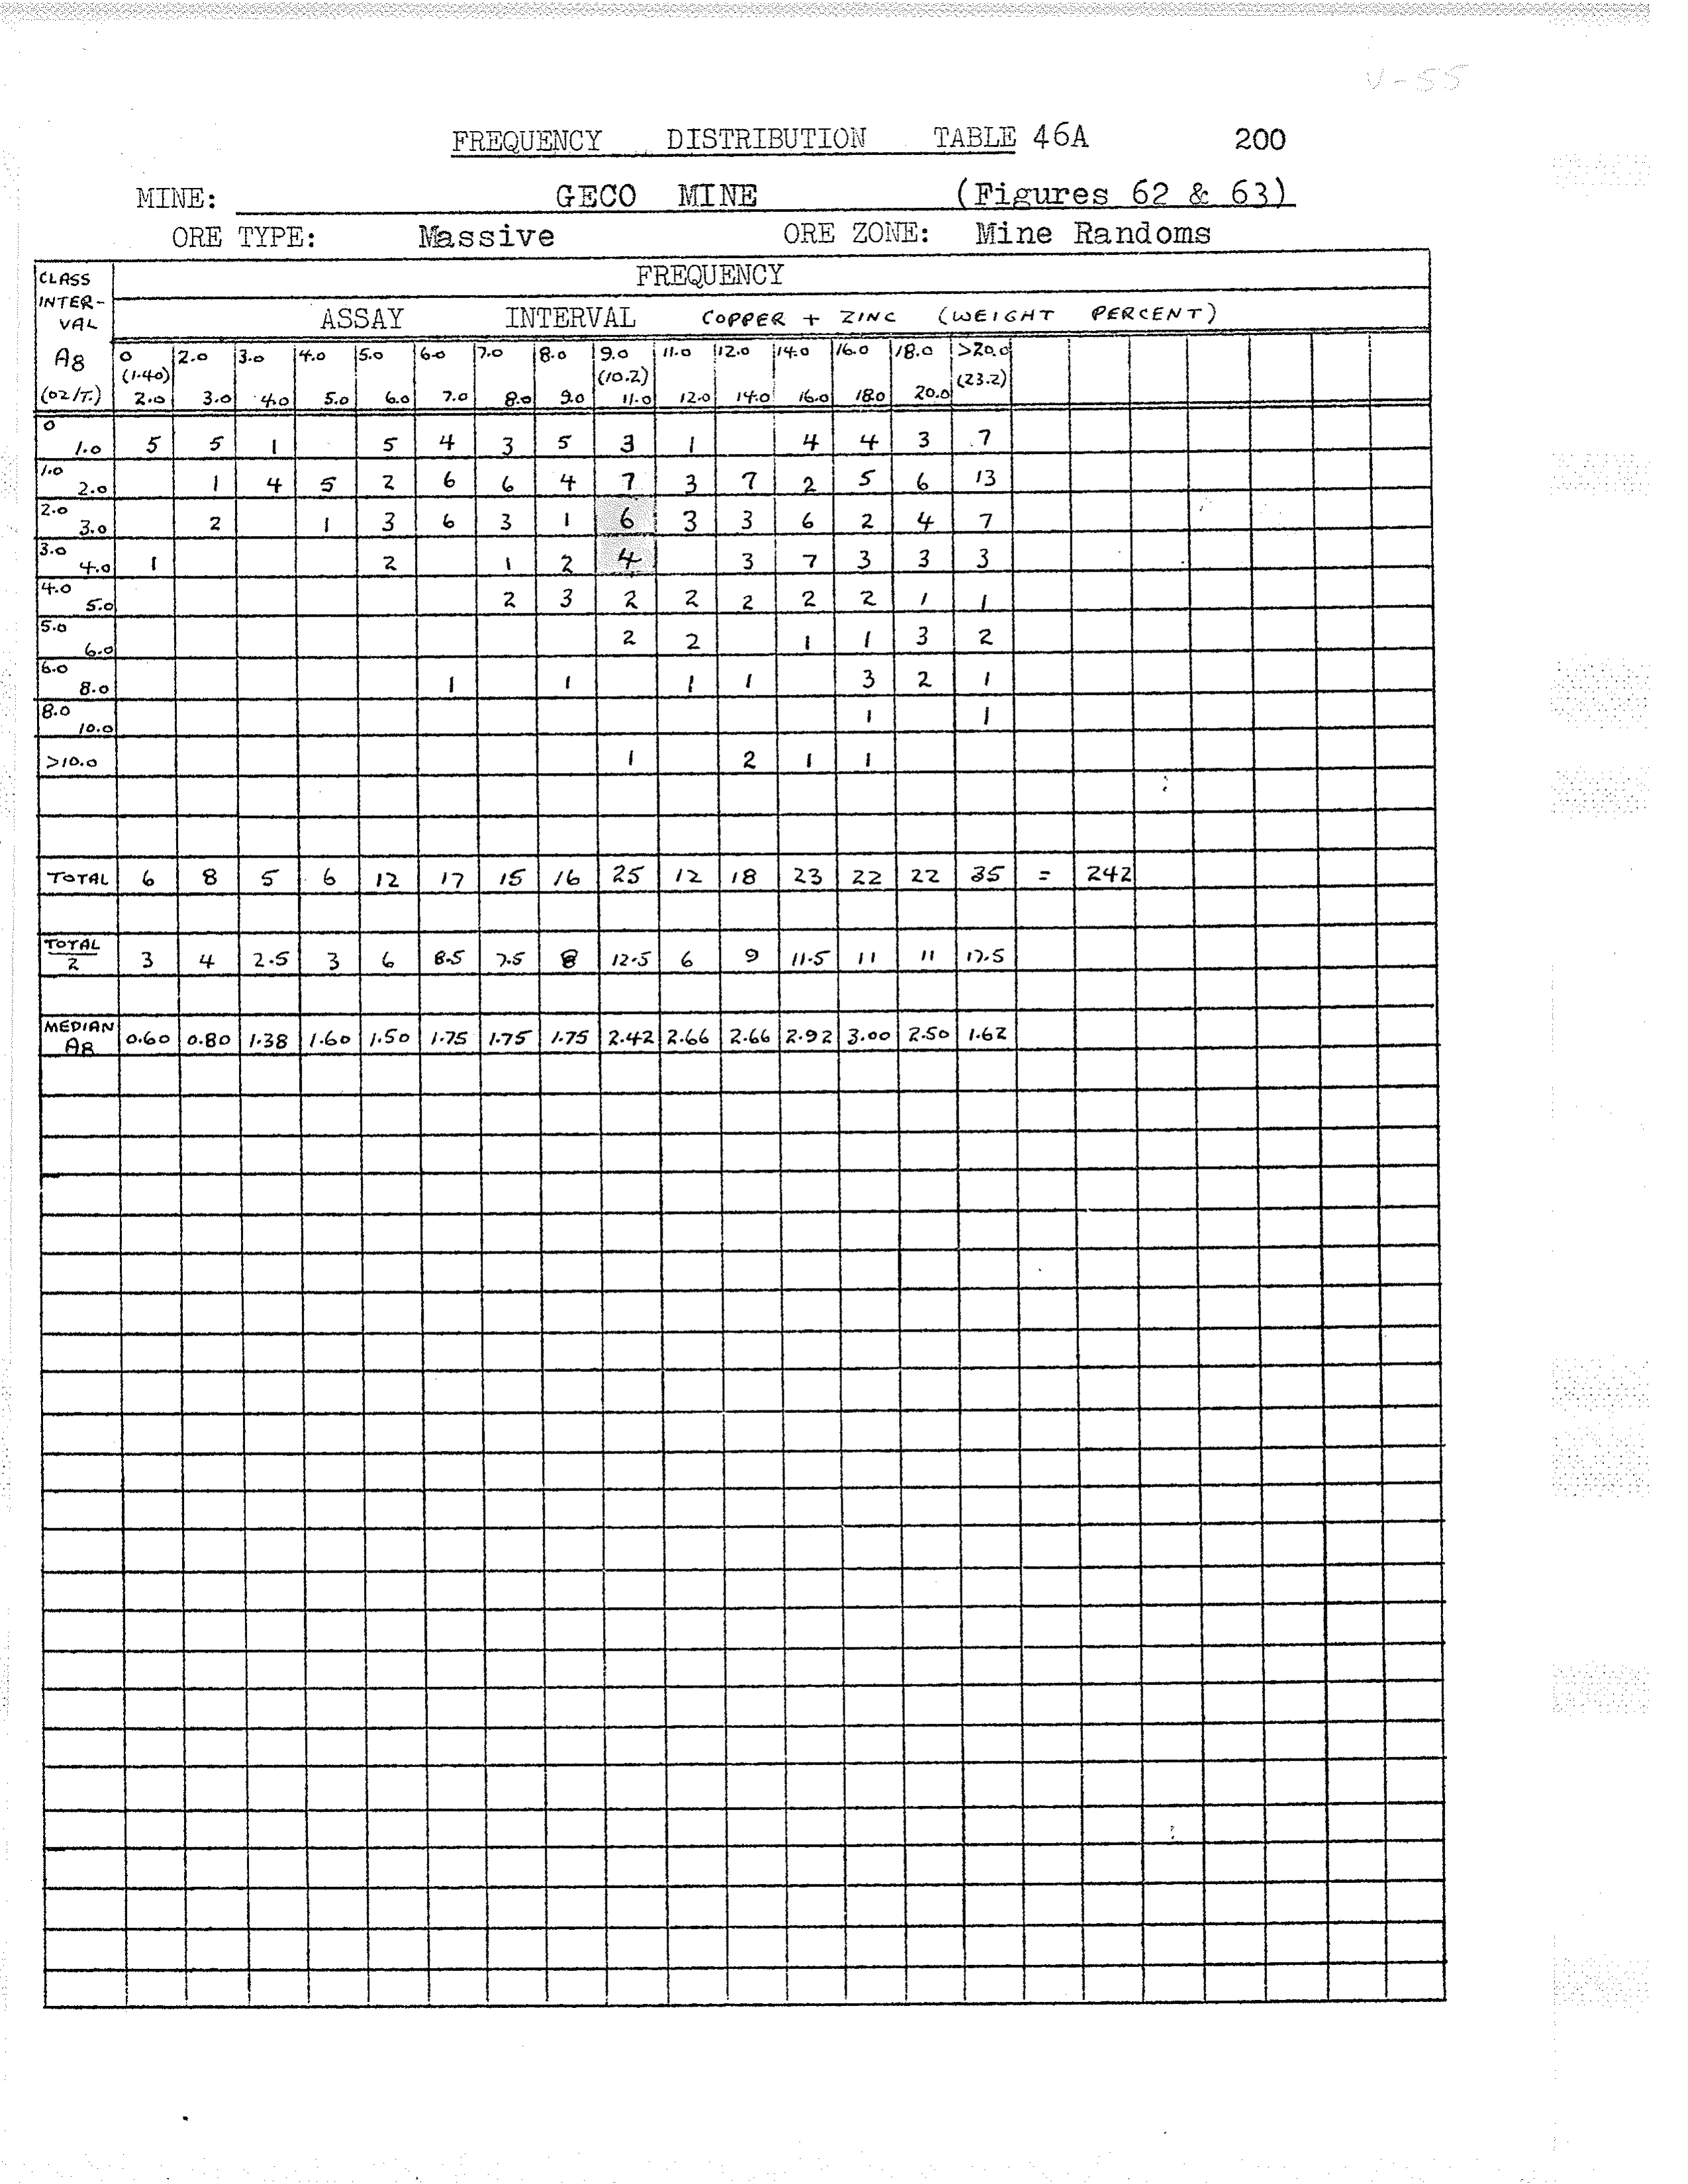 V-55
FREQUENCY DISTRIBUTION TABLE 46A 200
MINE: GECO MINE (Figures 62 & 63)
ORE TYPE: Massive ORE ZONE: Mine Randoms
CLASS INTER-VAL Ag (oz/T.) FREQUENCY
ASSAY INTERVAL COPPER + ZINC (WEIGHT PERCENT)
0 2.0 3.0 4.0 5.0 6.0 7.0 8.0 9.0 11.0 12.0 14.0 16.0 18.0 >20.0
(1.40) (10.2) (23.2)
2.0 3.0 4.0 5.0 6.0 7.0 8.0 9.0 11.0 12.0 14.0 16.0 18.0 20.0
0 1.0 5 5 1 5 4 3 5 3 1 4 4 3 7
1.0 2.0 1 4 5 2 6 6 4 7 3 7 2 5 6 13
2.0 3.0 2 1 3 6 3 1 6 3 3 6 2 4 7
3.0 4.0 1 2 1 2 4 3 7 3 3 3
4.0 5.0 2 3 2 2 2 2 2 1 1
5.0 6.0 2 2 1 1 3 2
6.0 8.0 1 1 1 1 3 2 1
8.0 10.0 1 1
>10.0 1 2 1 1
TOTAL 6 8 5 6 12 17 15 16 25 12 18 23 22 22 35 = 242
TOTAL 2 3 4 2.5 3 6 8.5 7.5 8 12.5 6 9 11.5 11 11 17.5
MEDIAN Ag 0.60 0.80 1.38 1.60 1.50 1.75 1.75 1.75 2.42 2.66 2.66 2.92 3.00 2.50 1.62